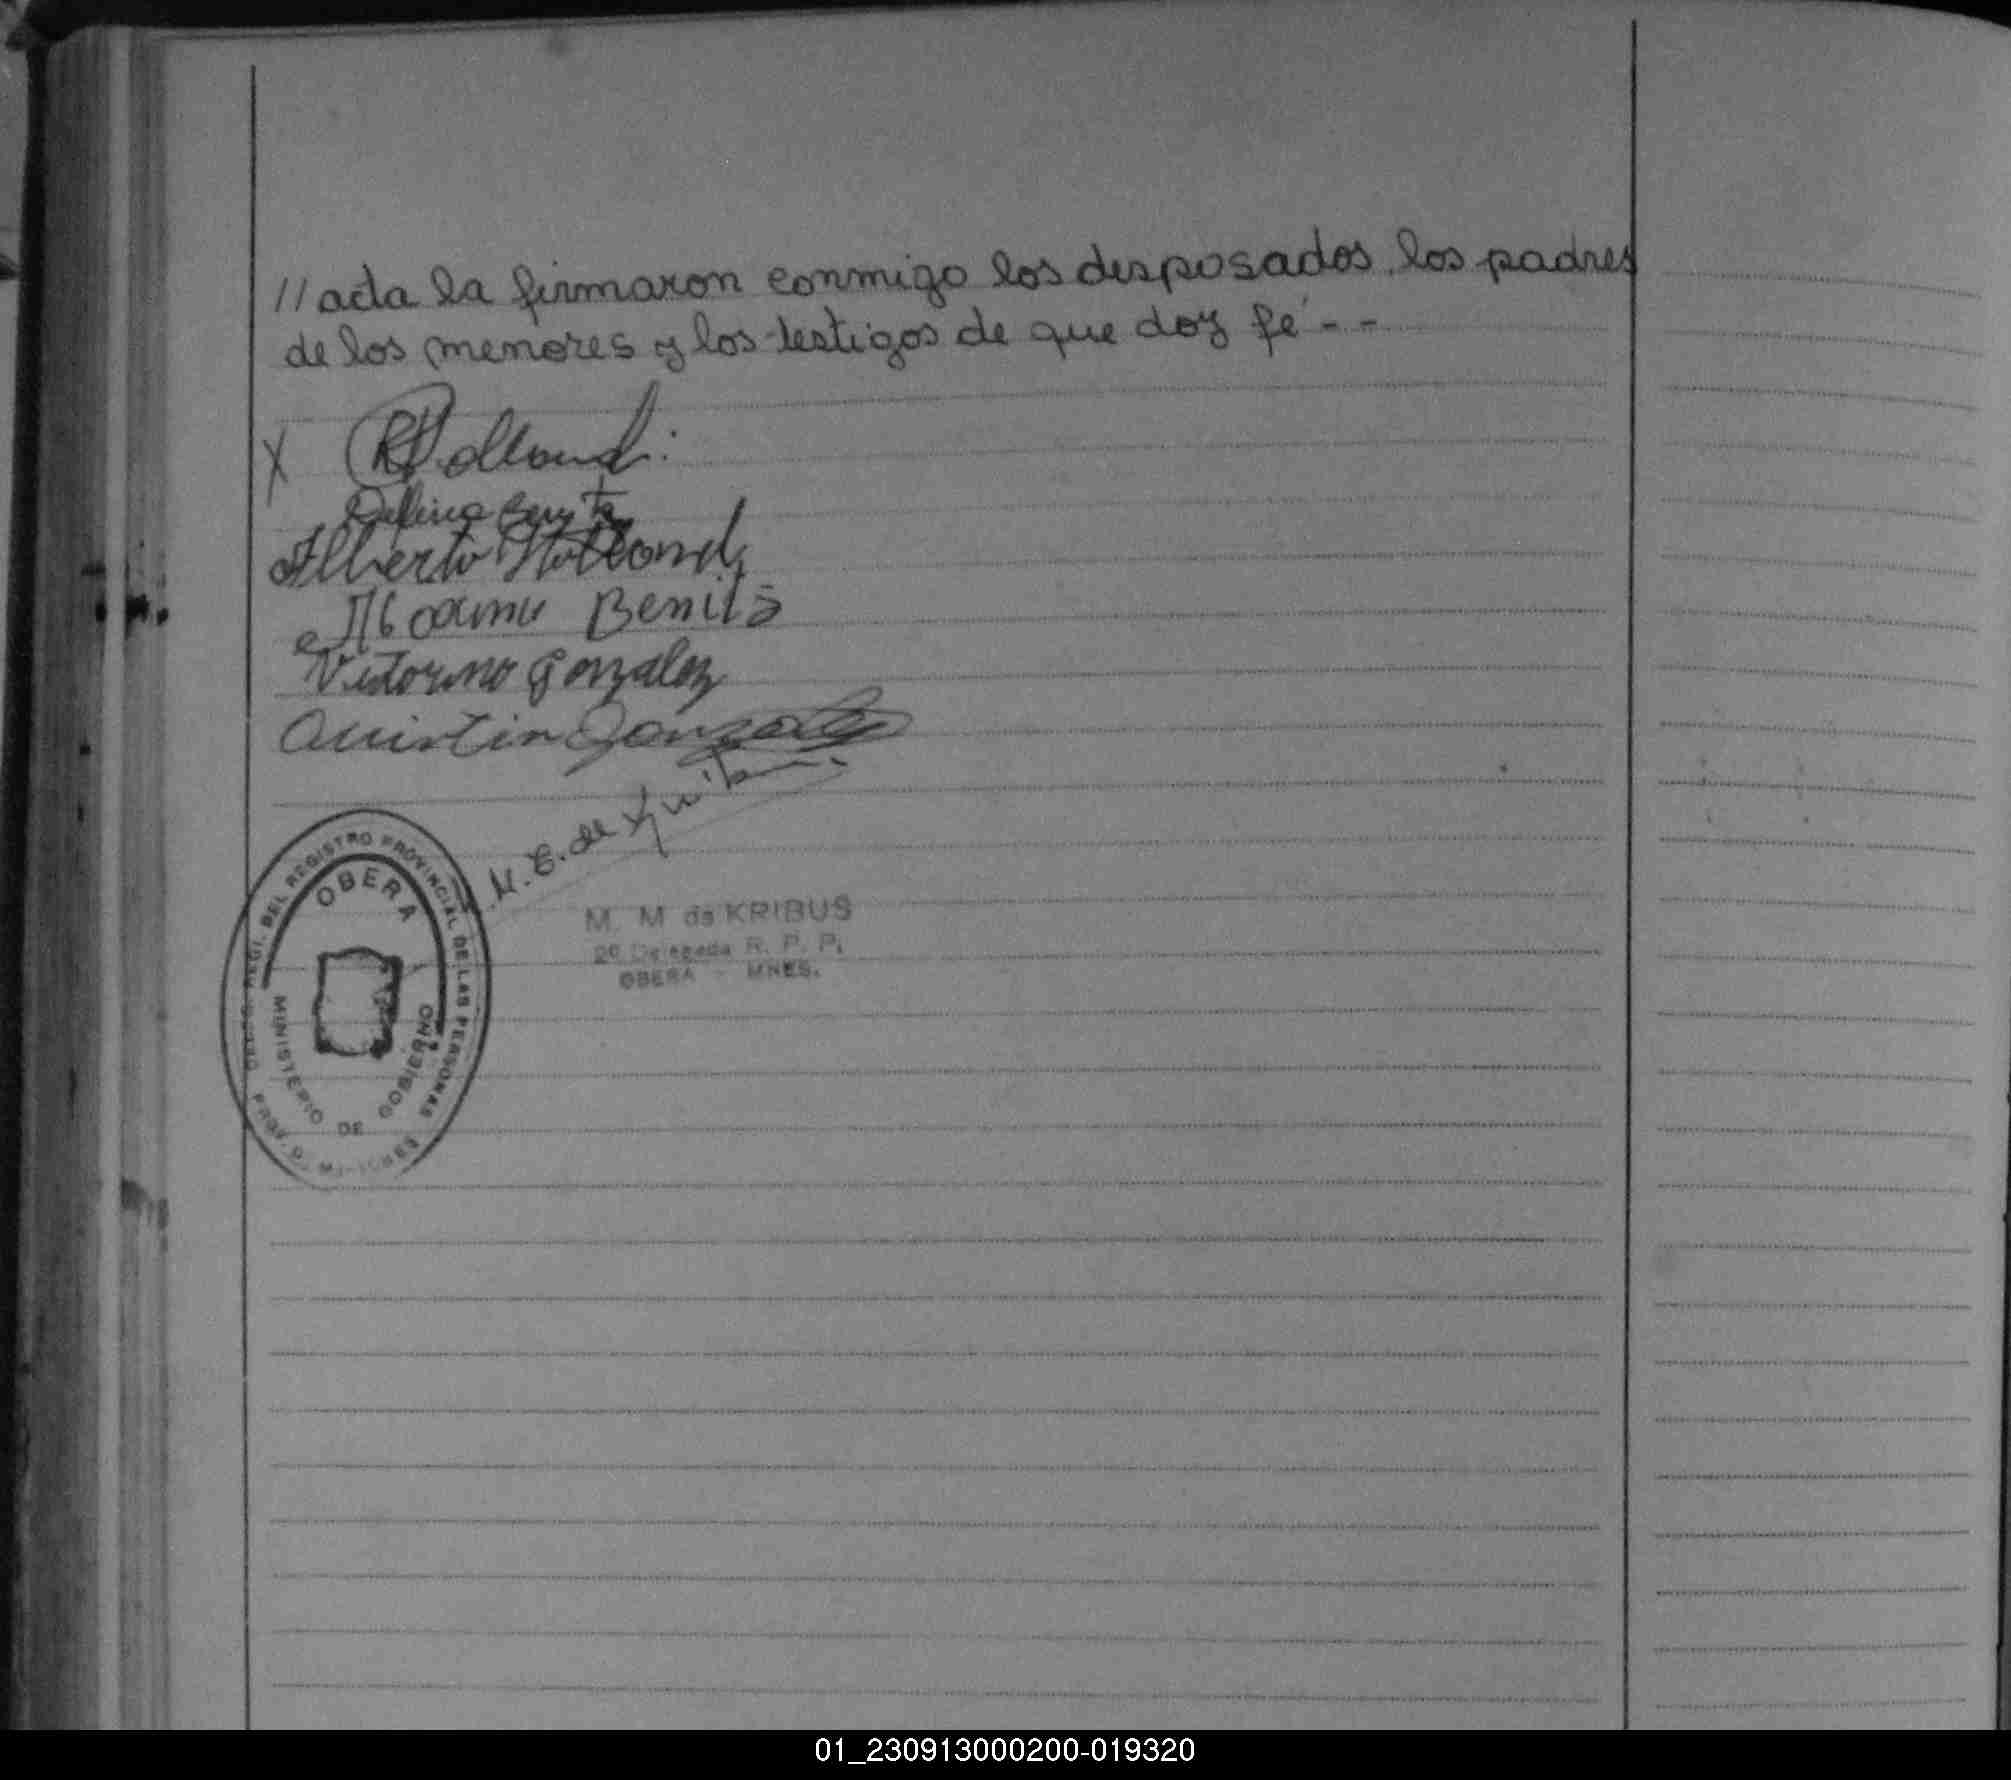 //acta la firmaron conmigo los desposados, los padres
de los menores y los testigos de que doy fé - -
X R Holland
Delfina Benitez
Alberto Holland
Benits
Victorino Gonzalez
Quintin Gonzalez
M. E. de
M. M de KRIBUS
2º Delegada R. P. P.
OBERA - MNES.
DEL REGISTRO PROVINCIAL DE LAS PERSONAS
OBERA
MINISTERIO DE GOBIERNO
PROV. D. MISIONES
01_230913000200-019320